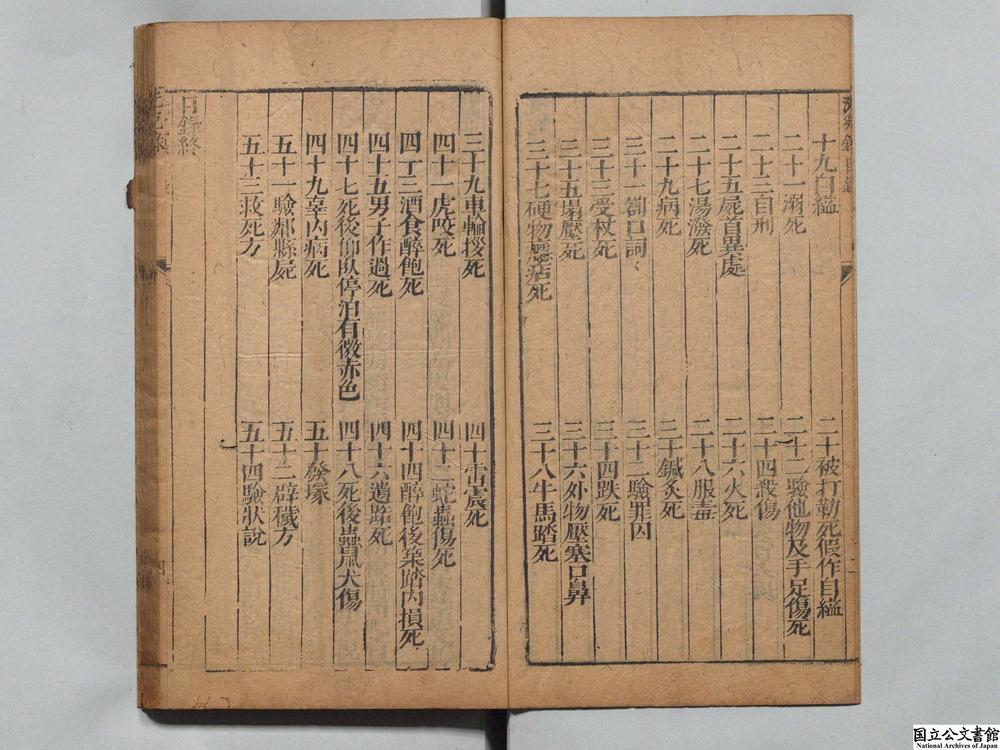 十九自縊
二十被打勒死假作自縊
二十一溺死
二十二驗他物及手足傷死
二十三自刑
二十四殺傷
二十五屍首異處
二十六火死
二十七湯潑死
二十八服毒
二十九病死
三十鍼灸死
三十一劄口詞
三十二驗罪囚
三十三受杖死
三十四跌死
三十五塌壓死
三十六外物壓塞口鼻
三十七硬物癮痁死
三十八牛馬踏死
三十九車輪拶死
四十雷震死
四十一虎咬死
四十二蛇蟲傷死
四十三酒食醉飽死
四十四醉飽後築踏內損死
四十五男子作過死
四十六遺路死
四十七死後仰臥停泊有微赤色
四十八死後蟲鼠犬傷
四十九辜內病死
五十發塚
五十一驗鄰縣屍
五十二辟穢方
五十三救死方
五十四驗狀說
目錄終
国立公文書館
National Archives of Japan